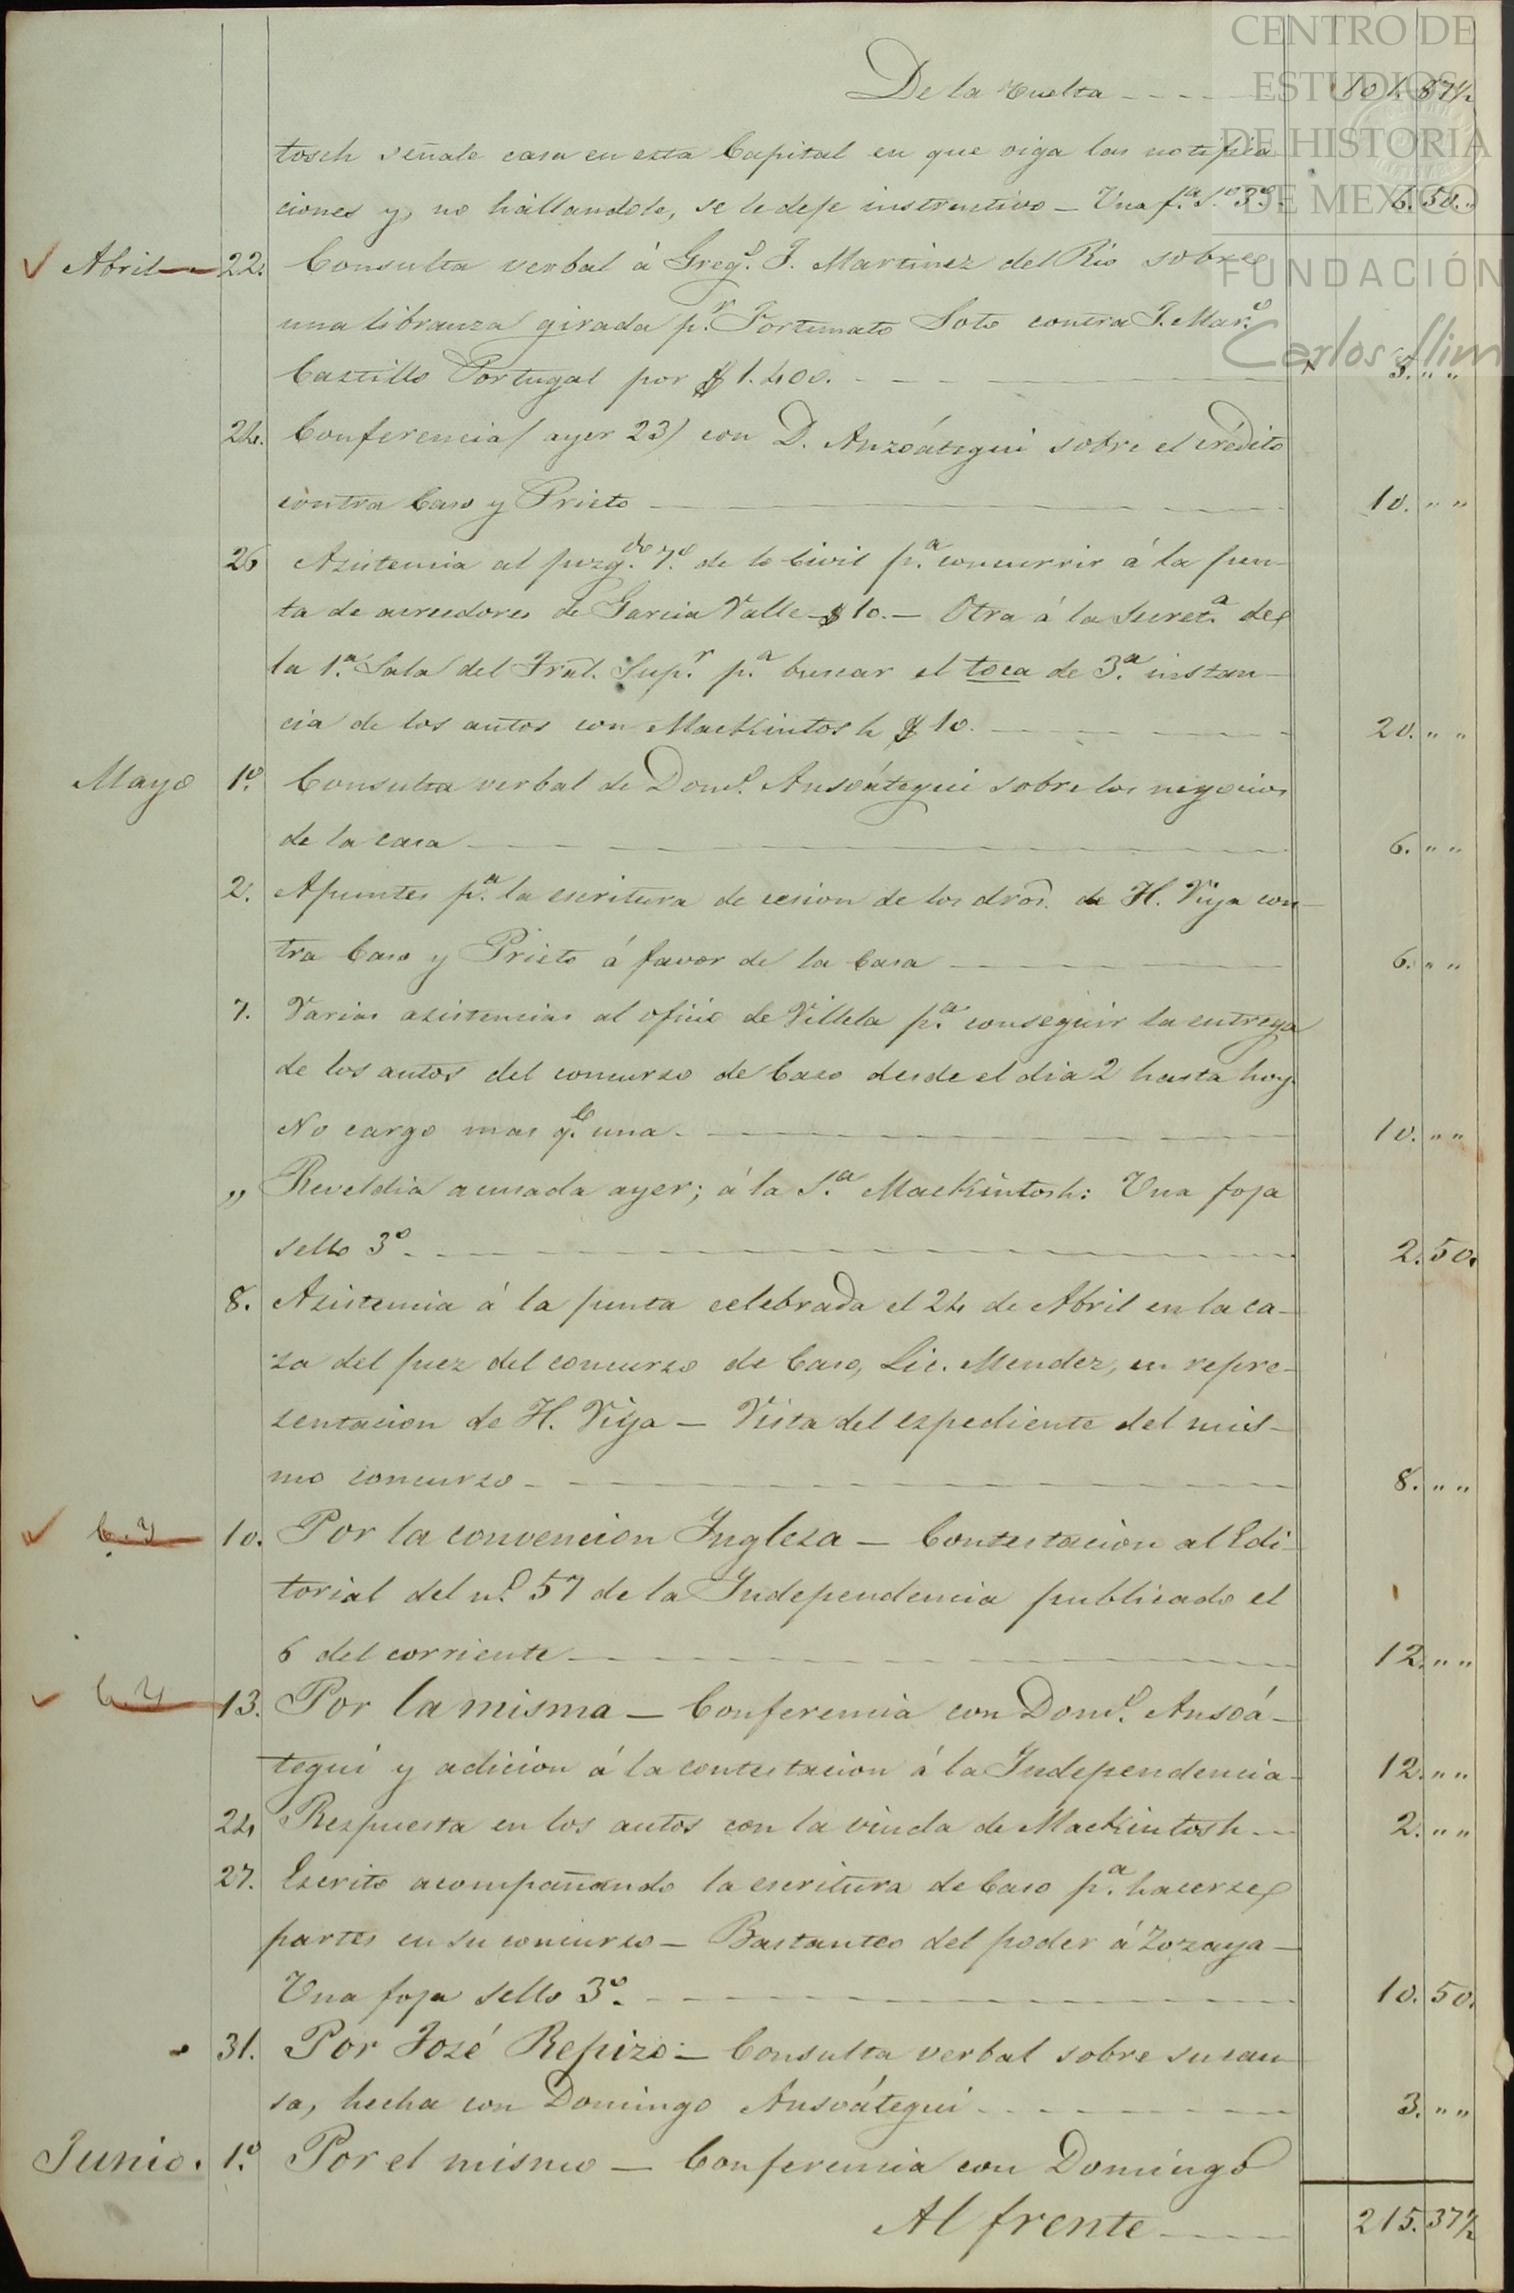 CENTRO DE
ESTUDIOS
DE HISTORIA
DE MEXICO
FUNDACIÓN
Carlos Slim
De la vuelta 87½
tosch señale casa en esta Capital en que oiga las notifica
ciones y, no hallandole, se le deje instructivo — Una f.ª S.º 3.º 6. 50.
Abril 22. Consulta verbal á Greg.º J. Martinez del Rio sobre
una libranza girada p.r Fortunato Soto contra J. Mar.º
Castillo Portugal por $ 1.400. 3. " "
24. Conferencia (ayer 23) con D. Anzoátegui sobre el crédito
contra Caso y Prieto 10. " "
26 Asistencia al juzg.do 7.º de lo Civil p.ª concurrir á la jun-
ta de acreedores de Garcia Valle $ 10. — Otra á la Secret.ª de
la 1.ª Sala del Tral. Sup.r p.ª buscar el toca de 3.ª instan-
cia de los autos con MacKintosh $ 10. 20. " "
Mayo 1.º Consulta verbal de Dom.º Ansoátegui sobre los negocios
de la casa 6. " "
2. Apuntes p.ª la escritura de cesion de los dros. de H. Viya con-
tra Caso y Prieto á favor de la Casa 6. " "
7. Varias asistencias al oficio de Villela p.ª conseguir la entrega
de los autos del concurso de Caso desde el dia 2 hasta hoy.
No cargo mas q.e una. 10. " "
" Reveldia acusada ayer; á la S.ª MacKintosh: Una foja
sello 3.º 2. 50.
8. Asistencia á la junta celebrada el 24 de Abril en la ca-
sa del juez del concurso de Caso, Lic. Mendez, en repre-
sentacion de H. Viya — Vista del espediente del mis-
mo concurso 8. " "
C. Y 10. Por la convencion Inglesa — Contestacion al Edi-
torial del n.º 57 de la Independencia publicado el
6 del corriente 12. " "
C. Y 13. Por la misma — Conferencia con Dom.º Ansoá-
tegui y adicion á la contestacion á la Independencia 12. " "
24 Respuesta en los autos con la viuda de MacKintosh 2. " "
27. Escrito acompañando la escritura de Caso p.ª hacerse
partes en su concurso — Bastanteo del poder á Zozaya —
Una foja sello 3.º 10. 50.
31. Por José Repizo — Consulta verbal sobre su cau-
sa, hecha con Domingo Ansoátegui 3. " "
Junio. 1.º Por el mismo — Conferencia con Domingo
Al frente 215. 37½